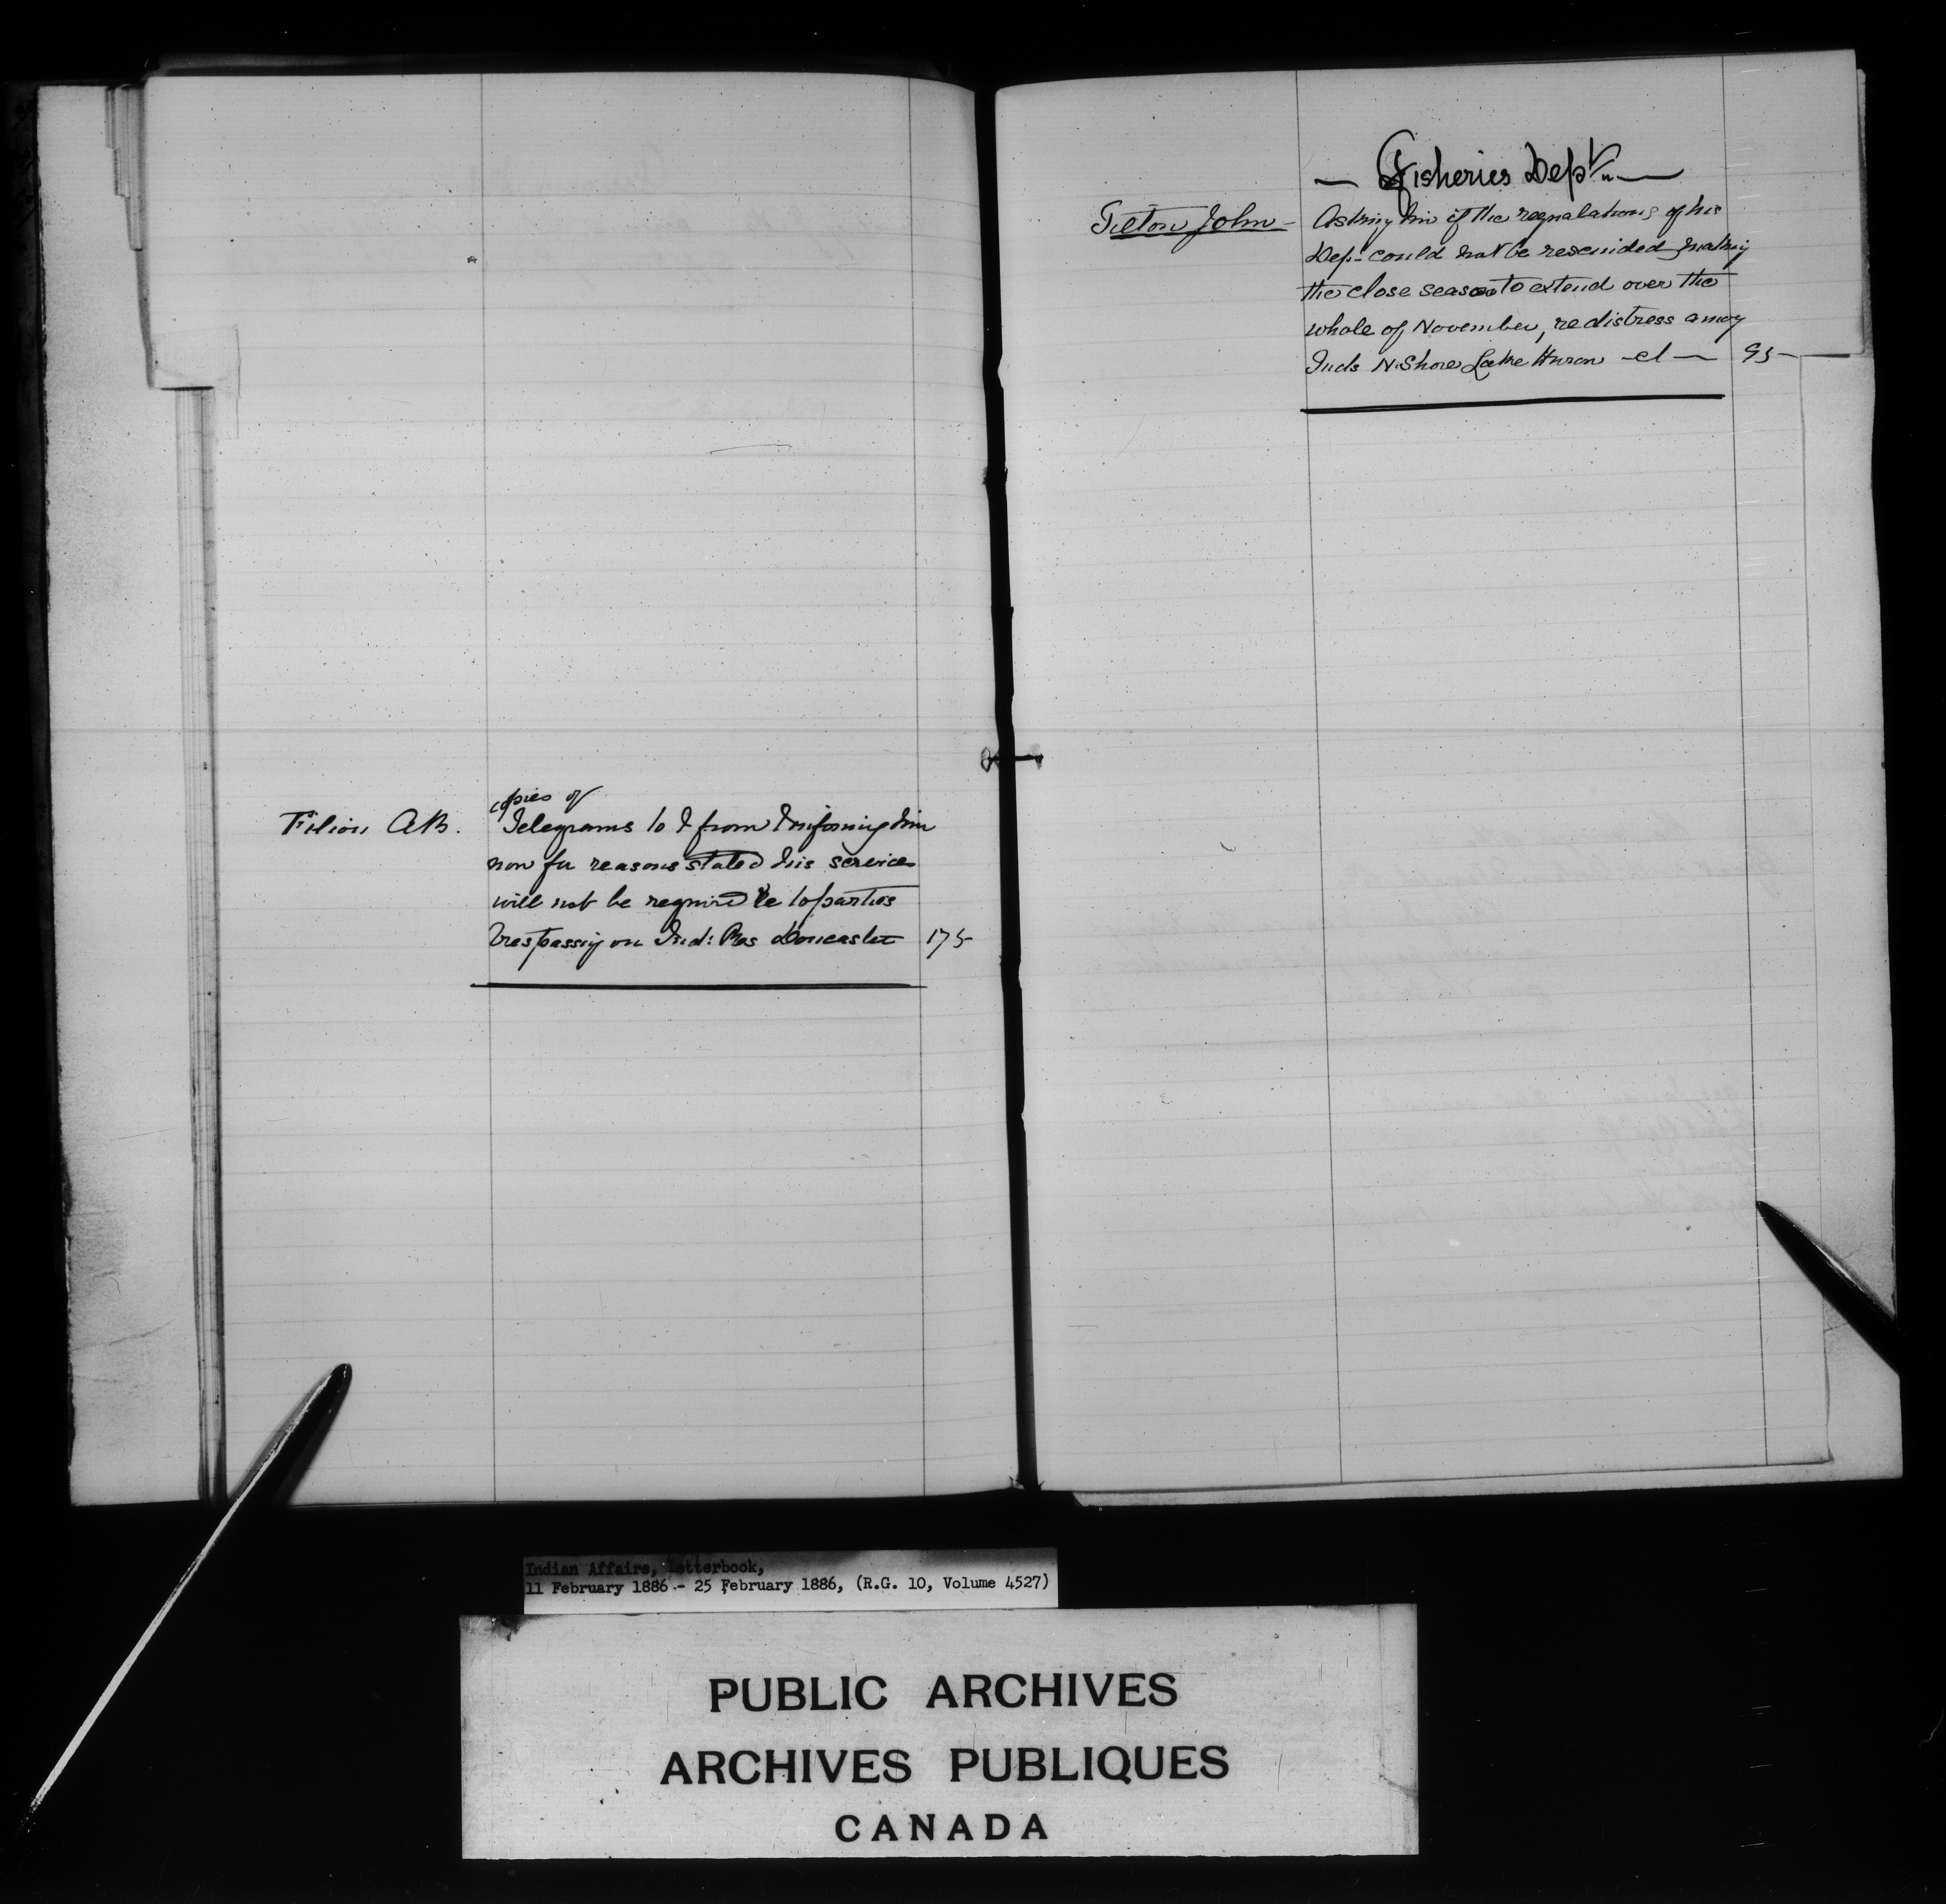 copies of
Filion A.B. Telegrams to & from & informing him
now for reasons stated his services
will not be required re to parties
trespassing on Ind: Res Doncaster 175
— Fisheries Dept —
Tilton John — Asking him if the regulations of his
Dep. could not be rescinded making
the close season to extend over the
whole of November, re distress among
Inds N. Shore Lake Huron — 95
Indian Affairs, Letterbook,
11 February 1886 - 25 February 1886, (R.G. 10, Volume 4527)
PUBLIC ARCHIVES
ARCHIVES PUBLIQUES
CANADA